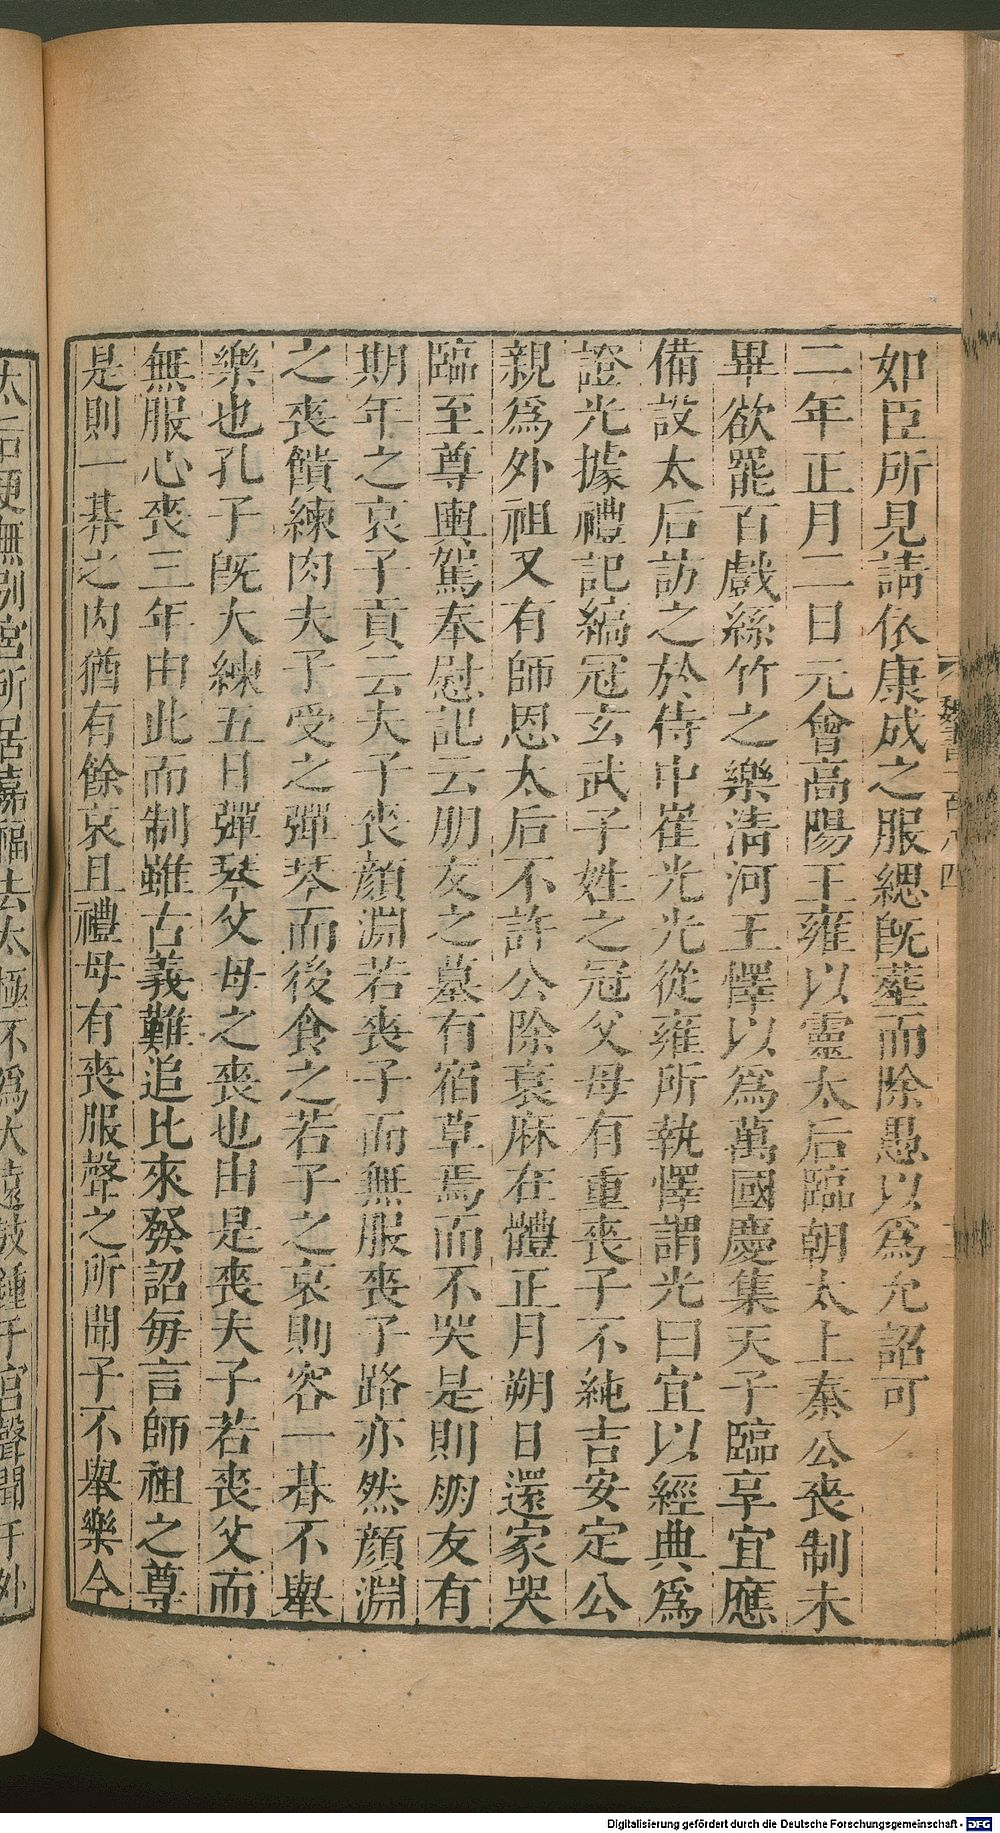 如臣所見請依康成之服緦旣葬而除愚以爲允詔可
二年正月二日元會高陽王雍以靈太后臨朝太上秦公喪制未
畢欲罷百戲絲竹之樂淸河王懌以爲萬國慶集天子臨享宜應
備設太后訪之於侍中崔光光從雍所執懌謂光曰宜以經典爲
證光據禮記縞冠玄武子姓之冠父母有重喪子不純吉安定公
親爲外祖又有師恩太后不許公除衰麻在體正月朔日還家哭
臨至尊輿駕奉慰記云朋友之墓有宿草焉而不哭是則朋友有
期年之哀子貢云夫子喪顏淵若喪子而無服喪子路亦然顏淵
之喪饋練肉夫子受之彈琴而後食之若子之哀則容一朞不舉
樂也孔子旣大練五日彈琴父母之喪也由是喪夫子若喪父而
無服心喪三年由此而制雖古義難追比來發詔每言師祖之尊
是則一朞之內猶有餘哀且禮母有喪服聲之所聞子不舉樂今
太后更無別宮所居嘉福去太極不爲大遠鼓鍾于宮聲聞于外
Digitalisierung gefördert durch die Deutsche Forschungsgemeinschaft - DFG